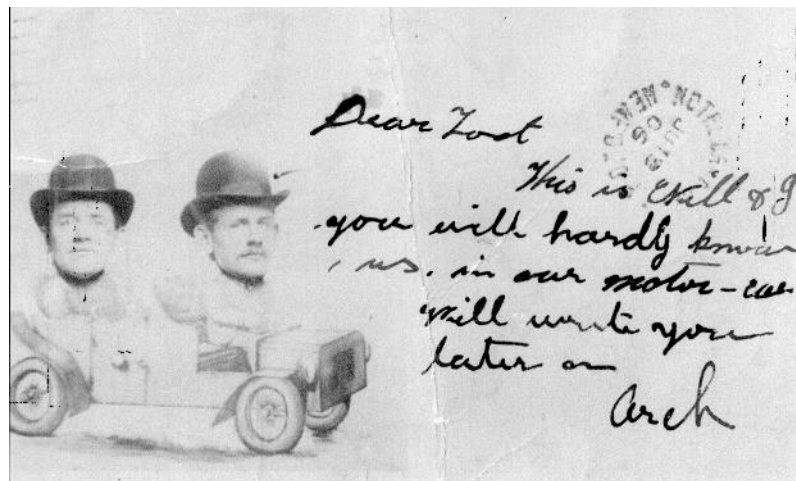 Dear
This is Will & I
you will hardly know
us. in our motor-car
Will write you
later on
Arch